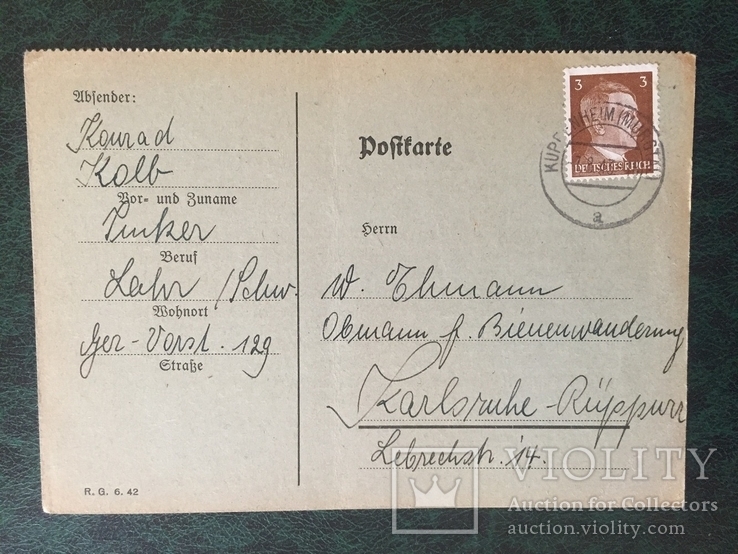 Absender:
Konrad
Kolb
Vor- und Zuname
Imker
Beruf
Lahr / Schw.
Wohnort
Ger-Vorst. 129
Straße
R. G. 6. 42
Postkarte
3 3
DEUTSCHES REICH
KUPPENHEIM (MURGTAL)
a
Herrn
W. Ehmann
Obmann f. Bienenwanderung
Karlsruhe-Rüppurr
Lebrechtstr. 14.
VIOLITY
Auction for Collectors
auction.violity.com